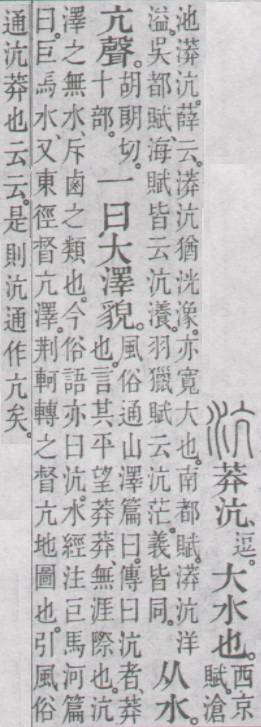 沆莽沆、逗。大水也。西京賦。滄
池漭沆。薛云。漭沆猶洸潒。亦寬大也。南都賦。漭沆洋溢。吳都賦、海賦皆云沆瀁。羽獵賦云沆茫。義皆同。从水。
亢聲。胡朗切。十部。一曰大澤貌。風俗通山澤篇曰。傳曰沆者、莽也。言其平望莽莽、無涯際也。沆
澤之無水、斥鹵之類也。今俗語亦曰沆。水經注巨馬河篇
曰。巨馬水、又東徑督亢澤。荊軻轉之督亢地圖也。引風俗
通沆莽也云云。是則沆通作亢矣。